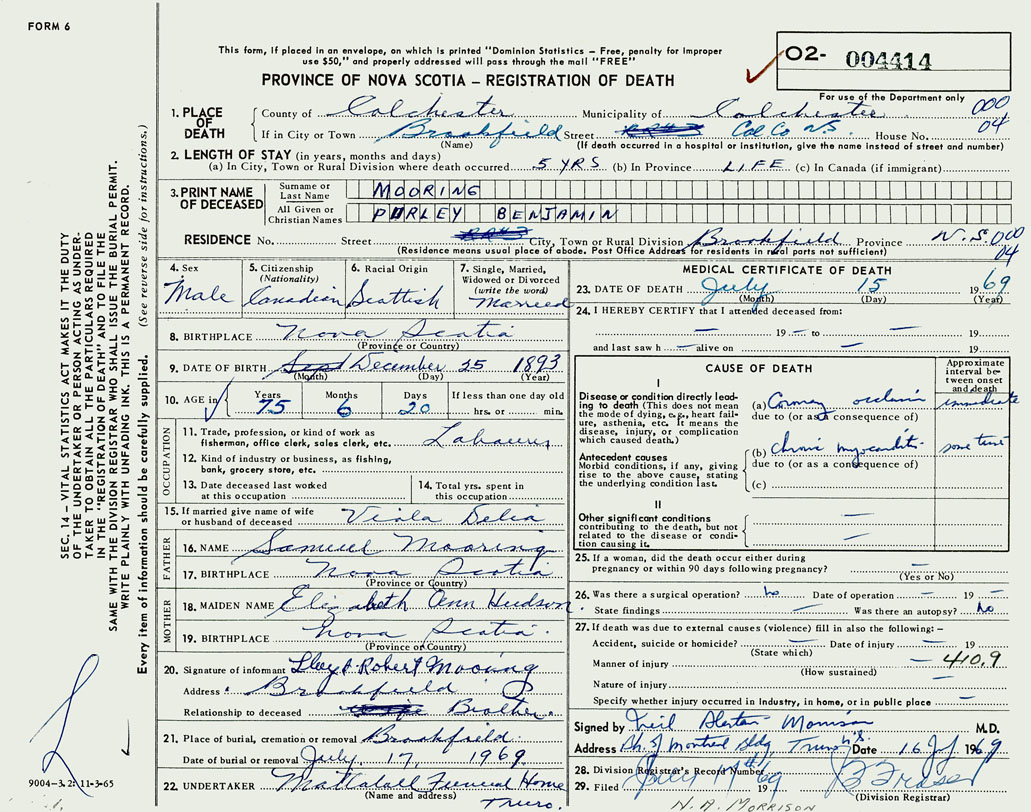 FORM 6
This form, if placed in an envelope, on which is printed "Dominion Statistics – Free, penalty for improper
use $50," and properly addressed will pass through the mail "FREE"
PROVINCE OF NOVA SCOTIA – REGISTRATION OF DEATH
O2- 004414
For use of the Department only
000
04
1. PLACE OF DEATH
County of Colchester Municipality of Colchester
If in City or Town Brookfield Street Col Co N.S. House No.
(Name) (If death occurred in a hospital or institution, give the name instead of street and number)
2. LENGTH OF STAY (in years, months and days)
(a) In City, Town or Rural Division where death occurred 5 YRS (b) In Province LIFE (c) In Canada (if immigrant)
3. PRINT NAME OF DECEASED
Surname or Last Name MOORING
All Given or Christian Names PURLEY BENJAMIN
RESIDENCE No. Street City, Town or Rural Division Brookfield Province N.S. 000
04
(Residence means usual place of abode. Post Office Address for residents in rural parts not sufficient)
4. Sex Male
5. Citizenship (Nationality) Canadian
6. Racial Origin Scottish
7. Single, Married, Widowed or Divorced (write the word) Married
8. BIRTHPLACE Nova Scotia
(Province or Country)
9. DATE OF BIRTH Sept December 25 1893
(Month) (Day) (Year)
10. AGE in Years 75 Months 6 Days 20 If less than one day old hrs. or min.
OCCUPATION
11. Trade, profession, or kind of work as
fisherman, office clerk, sales clerk, etc. Labourer
12. Kind of industry or business, as fishing,
bank, grocery store, etc.
13. Date deceased last worked
at this occupation
14. Total yrs. spent in
this occupation
15. If married give name of wife
or husband of deceased Viola Delia
FATHER
16. NAME Samuel Mooring
17. BIRTHPLACE Nova Scotia
(Province or Country)
MOTHER
18. MAIDEN NAME Elizabeth Ann Hudson
19. BIRTHPLACE Nova Scotia.
(Province or Country)
20. Signature of informant Robert Mooring
Address Brookfield
Relationship to deceased Brother
21. Place of burial, cremation or removal Brookfield.
Date of burial or removal July 17, 1969
22. UNDERTAKER Mattatall Funeral Home
(Name and address) Truro.
MEDICAL CERTIFICATE OF DEATH
23. DATE OF DEATH July 15 1969
(Month) (Day) (Year)
24. I HEREBY CERTIFY that I attended deceased from:
— 19 — to — 19
and last saw h — alive on — 19
CAUSE OF DEATH
Approximate interval between onset and death
I
Disease or condition directly leading to death (This does not mean the mode of dying, e.g., heart failure, asthenia, etc. It means the disease, injury, or complication which caused death.)
(a) Coronary occlusion immediate
due to (or as a consequence of)
Antecedent causes
Morbid conditions, if any, giving rise to the above cause, stating the underlying condition last.
(b) Chronic myocarditis some time
due to (or as a consequence of)
(c)
II
Other significant conditions
contributing to the death, but not related to the disease or condition causing it.
25. If a woman, did the death occur either during
pregnancy or within 90 days following pregnancy? —
(Yes or No)
26. Was there a surgical operation? no Date of operation — 19 —
State findings — Was there an autopsy? No
27. If death was due to external causes (violence) fill in also the following: –
Accident, suicide or homicide? — Date of injury — 19
(State which)
Manner of injury — 410.9
(How sustained)
Nature of injury —
Specify whether injury occurred in industry, in home, or in public place —
Signed by Neil Alastair Morrison M.D.
Address Montreal Bldg, Truro N.S. Date 16 July 1969
28. Division Registrar's Record Number
29. Filed July 17th 1969
B Fraser
(Division Registrar)
N. A. MORRISON
SEC. 14 – VITAL STATISTICS ACT MAKES IT THE DUTY
OF THE UNDERTAKER OR PERSON ACTING AS UNDER-
TAKER TO OBTAIN ALL THE PARTICULARS REQUIRED
IN THE "REGISTRATION OF DEATH" AND TO FILE THE
SAME WITH THE DIVISION REGISTRAR WHO SHALL ISSUE THE BURIAL PERMIT.
WRITE PLAINLY WITH UNFADING INK. THIS IS A PERMANENT RECORD.
Every item of information should be carefully supplied. (See reverse side for instructions.)
9004-3.2: 11-3-65